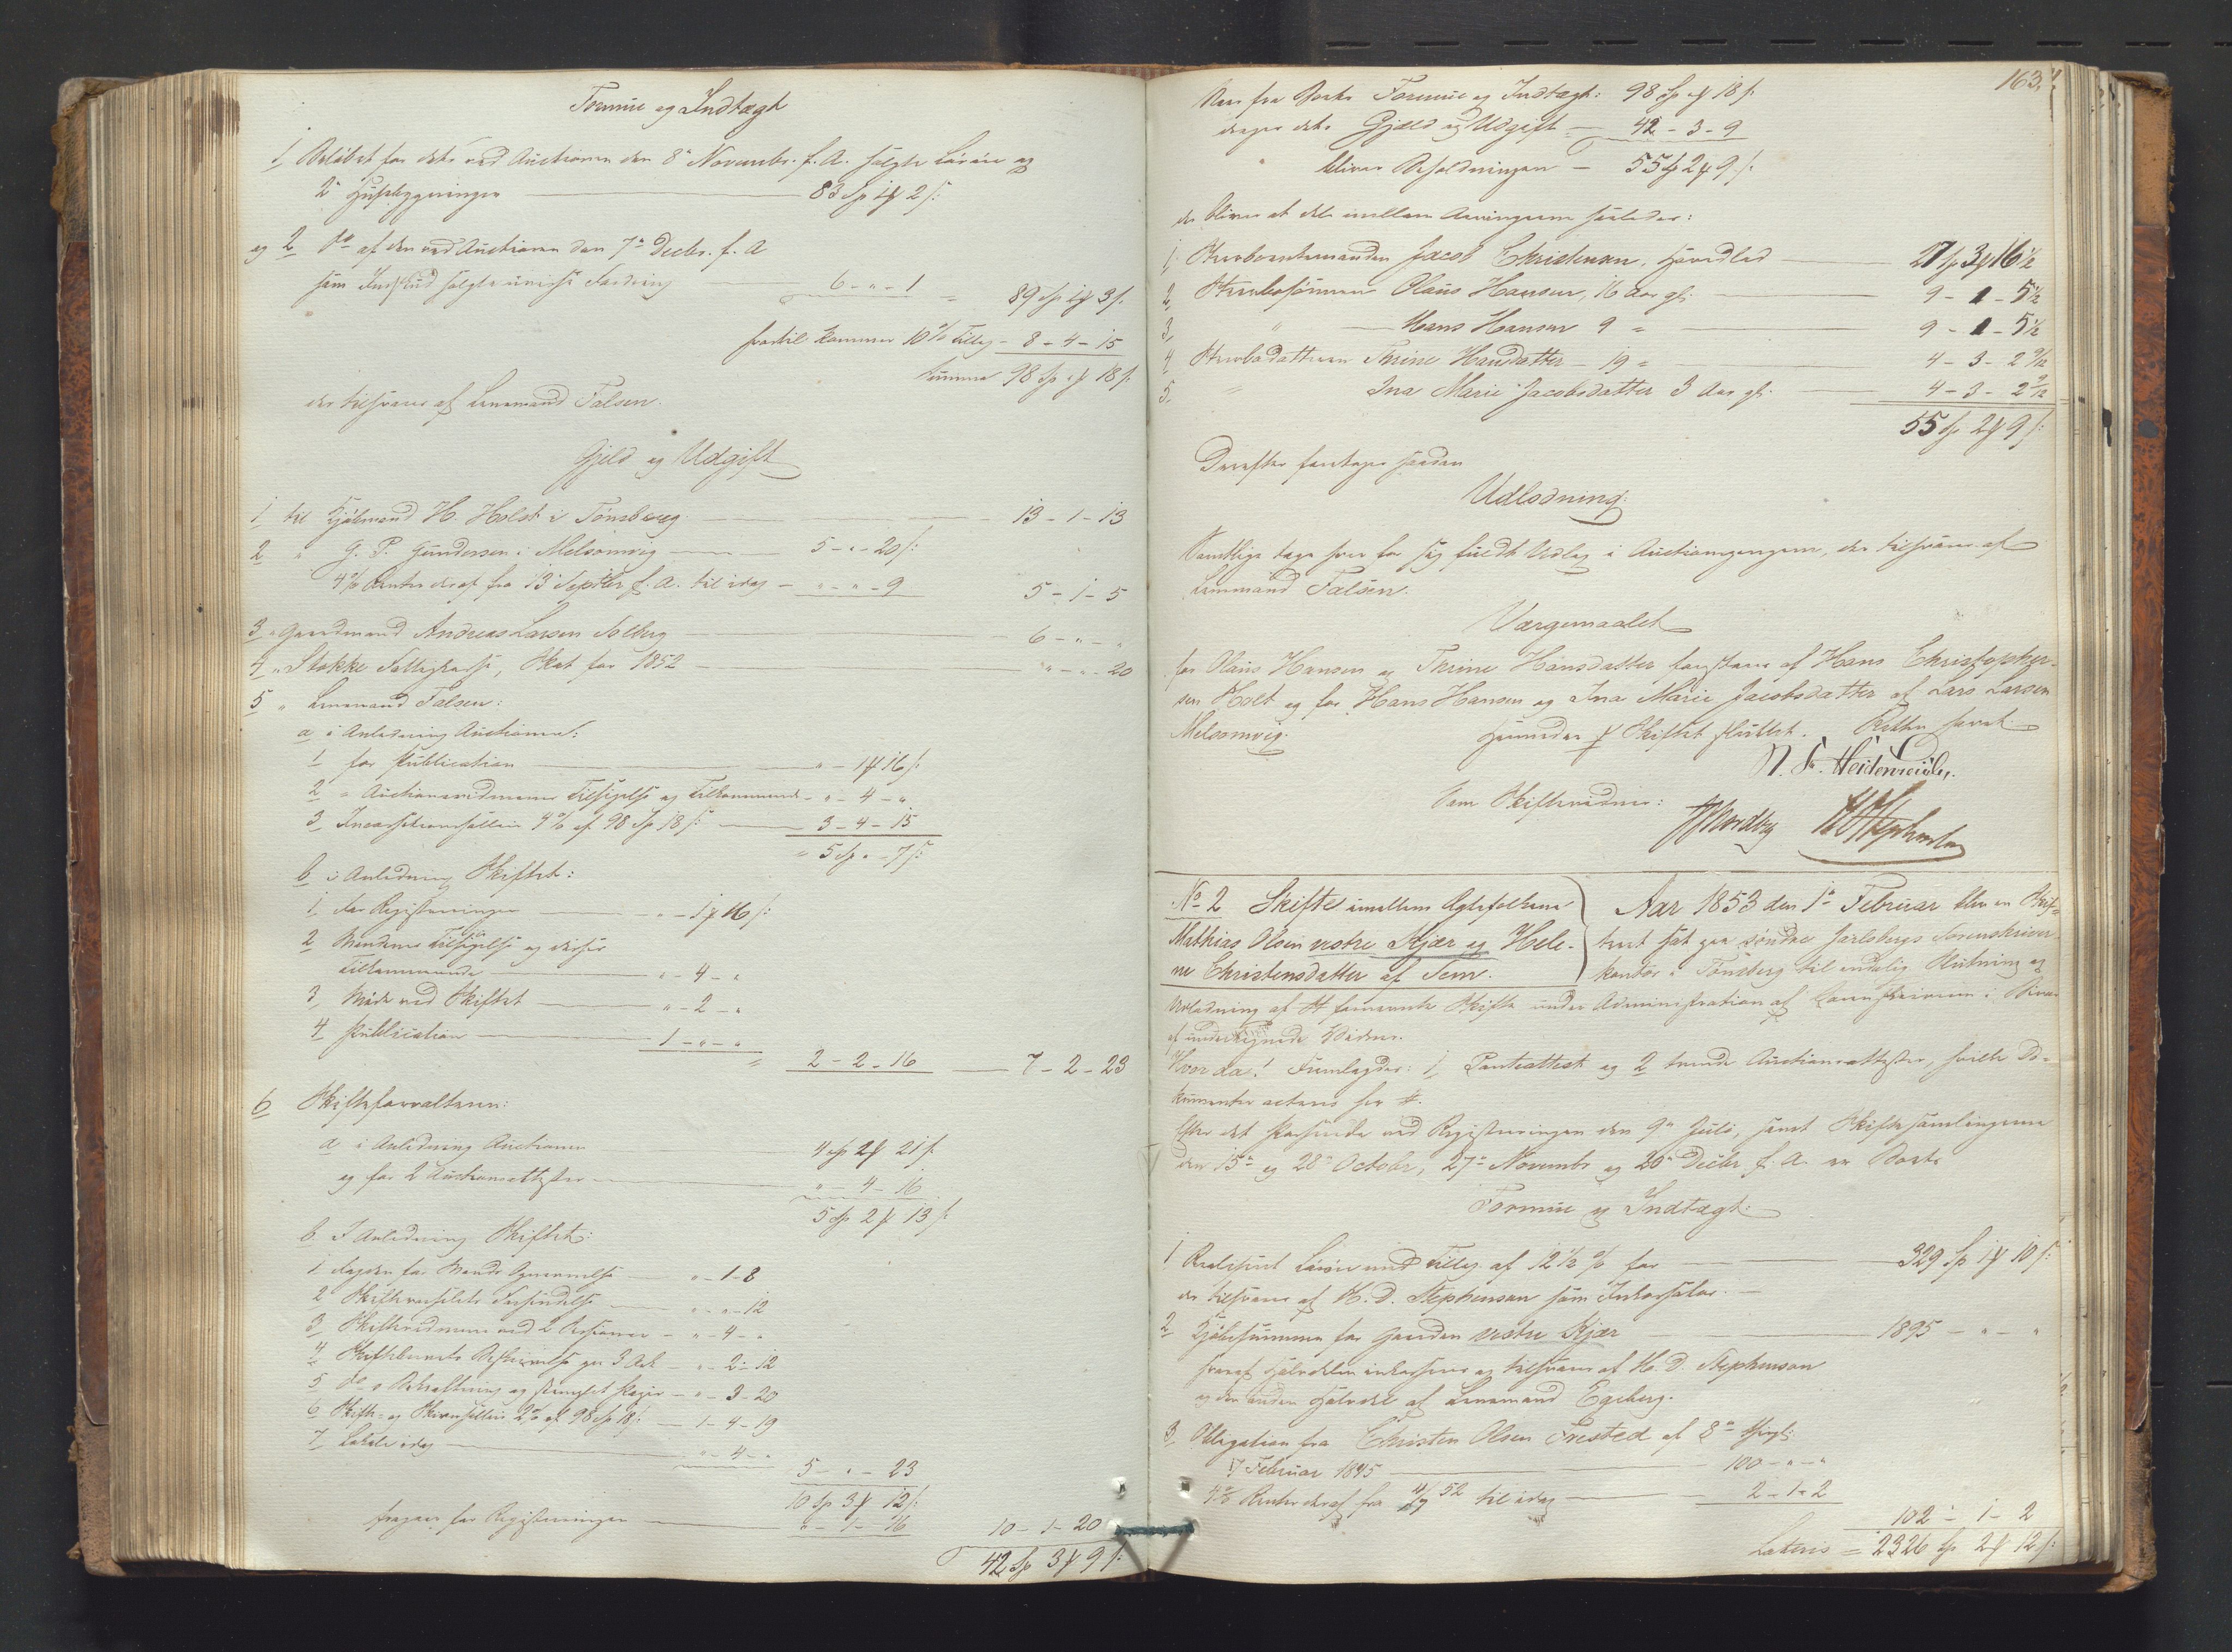 Formue og Indtægt
1, Beløbet for dets ved Auctionen den 8de Novembr. f. A. solgte Løsøre og
2de Huusbygninger — 83 Sp 1 # 2 s:
og 2 Do af den ved Auctionen den 7de Decbr. f. A
som solgte uvisse Fordring — 6 - " - 1 = 89 Sp 1 # 3 s.
hvortil kommer 10 % Tillæg - 8 - 4 - 15
Summa 98 Sp " # 18 s.
der tilsvares af Lensmand Falsen.
Gjeld og Udgift
1, til Kjøbmand H. Holst i Tønsberg — 13 - 1 - 13
2 " G. P. Gundersen i Melsomvig — 5 - " - 20 s:
4 % Renter deraf fra 13 Septbr f. A. til idag — " - " - 9 5 - 1 - 5
3 " Gaardmand Andreas Larsen Solberg — 6 - " - "
4 " Stokke Fattigkasse, Skat for 1852 — " - " - 20
5 " Lensmand Falsen:
a i Anledning Auctionen:
1 for Publication — " - 1 # 16 s.
2 " Auctionsvidnernes Tilsigelse og Tilkommende - " - 4 - "
3, Incassationssallair 4 % af 98 Sp 18 s: — 3 - 4 - 15
= 5 Sp " - 7 s:
b i Anledning Skiftet:
1, for Registreringen — " - 1 # 16 s:
2 Mændenes Tilsigelse og disses
Tilkommende — " - 4 - "
3, Møde ved Skiftet — " - 2 - "
4 Publication — 1 - " - "
= 2 - 2 - 16 — 7 - 2 - 23
6 Skifteforvalteren:
a i Anledning Auctionen 4 Sp 2 # 21 s.
og for 2 Auctionsattester — " - 4 - 16
5 Sp 2 # 13 s.
b. I Anledning Skiftet:
1 Sagden for Mænds Opnævnelse — " - 1 - 8
2 Skifterosselets Forsendelse — " - " - 12
3 Skiftevidnerne ved 2 Sessioner - " - 4 - "
4 Skiftebrevets Beskrivelse paa 3 Ark - " - 2 - 12
5 do s Bekræftning og stemplet Papir - " - 3 - 20
6 Skifte- og Skriversallair 2 % af 98 Sp 18 s: — 1 - 4 - 19
7, Lokale idag — " - 4 - "
5 - " - 23
10 Sp 3 # 12 s.
fragaar for Registreringen — " - 1 - 16 10 - 1 - 20
42 Sp 3 # 9 s:
163.
Naar fra Boets Formue og Indtægt: 98 Sp " # 18 s.
drages dets Gjæld og Udgift = 42 - 3 - 9
bliver Beholdningen — 55 Sp 2 # 9 s.
der bliver at dele imellem Arvingerne saaledes:
1, Sterboenkemanden Jacob Christensen, Hovedlod — 27 Sp 3 # 16 1/2
2, Sterbosønnen Olaus Hansen, 16 Aar gl: — 9 - 1 - 5 1/2
3, " — Hans Hansen 9 = — 9 - 1 - 5 1/2
4 Sterbodatteren Thrine Hansdatter — 19 = — 4 - 3 - 2 9/12
5. " Ina Marie Jacobsdatter 3 Aar gl. — 4 - 3 - 2 9/12
55 Sp 2 # 9 s:
Derefter foretages saadan
Udlodning:
Samtlige tage hver for sig fuldt Udlæg i Auctionspengene, der tilsvares af
Lensmand Falsen.
Værgemaalet
for Olaus Hansen og Thrine Hansdatter forestaaes af Hans Christopher-
sen Holt og for Hans Hansen og Ina Marie Jacobsdatter af Lars Larsen
Melsomvig. Hermed er Skiftet sluttet. Retten hævet
N. Fr. Heidenreich.
Som Skiftevidner:
Nordby HDStephensen
No 2 Skifte imellem Ægtefolkene
Mathias Olsen vestre Kjær og Hele-
ne Christensdatter af Sem.
Aar 1853 den 1te Februar blev en Skif-
teret sat paa søndre Jarlsbergs Sorenskriver-
kontor i Tønsberg til endelig Slutning og
Udlodning af et fornævnte Skifte under Administration af Sorenskriveren i Overvær
af undertegnede Vidner.
Hvor da! Fremlagdes: 1, Panteattest og 2 tvende Auctionsattester, hvilke Do-
kumenter acteres her #.
Efter det Passerede ved Registreringen den 9de Juli, samt Skiftesamlingerne
den 15de og 28de October, 27de Novembr og 20de Decbr f. A. er Boets
Formue og Indtægt:
1 Realiseret Løsøre med Tillæg af 12 1/2 % for — 329 Sp 1 # 10 s:
der tilsvares af H. D. Stephensen som Inkassator. —
2 Kjøbesummen for Gaarden vestre Kjær — 1895 - " - "
hvoraf Halvdelen inkasseres og tilsvares af H. D. Stephensen
og den anden Halvdel af Lensmand Egeberg.
3 Obligation fra Christen Olsen Frested af 8de thingl:
17 Februar 1845 — 100 - " - "
4 % Renter deraf fra til idag — 2 - 1 - 2
102 - 1 - 2
Lateris = 2326 Sp 2 # 12 s: